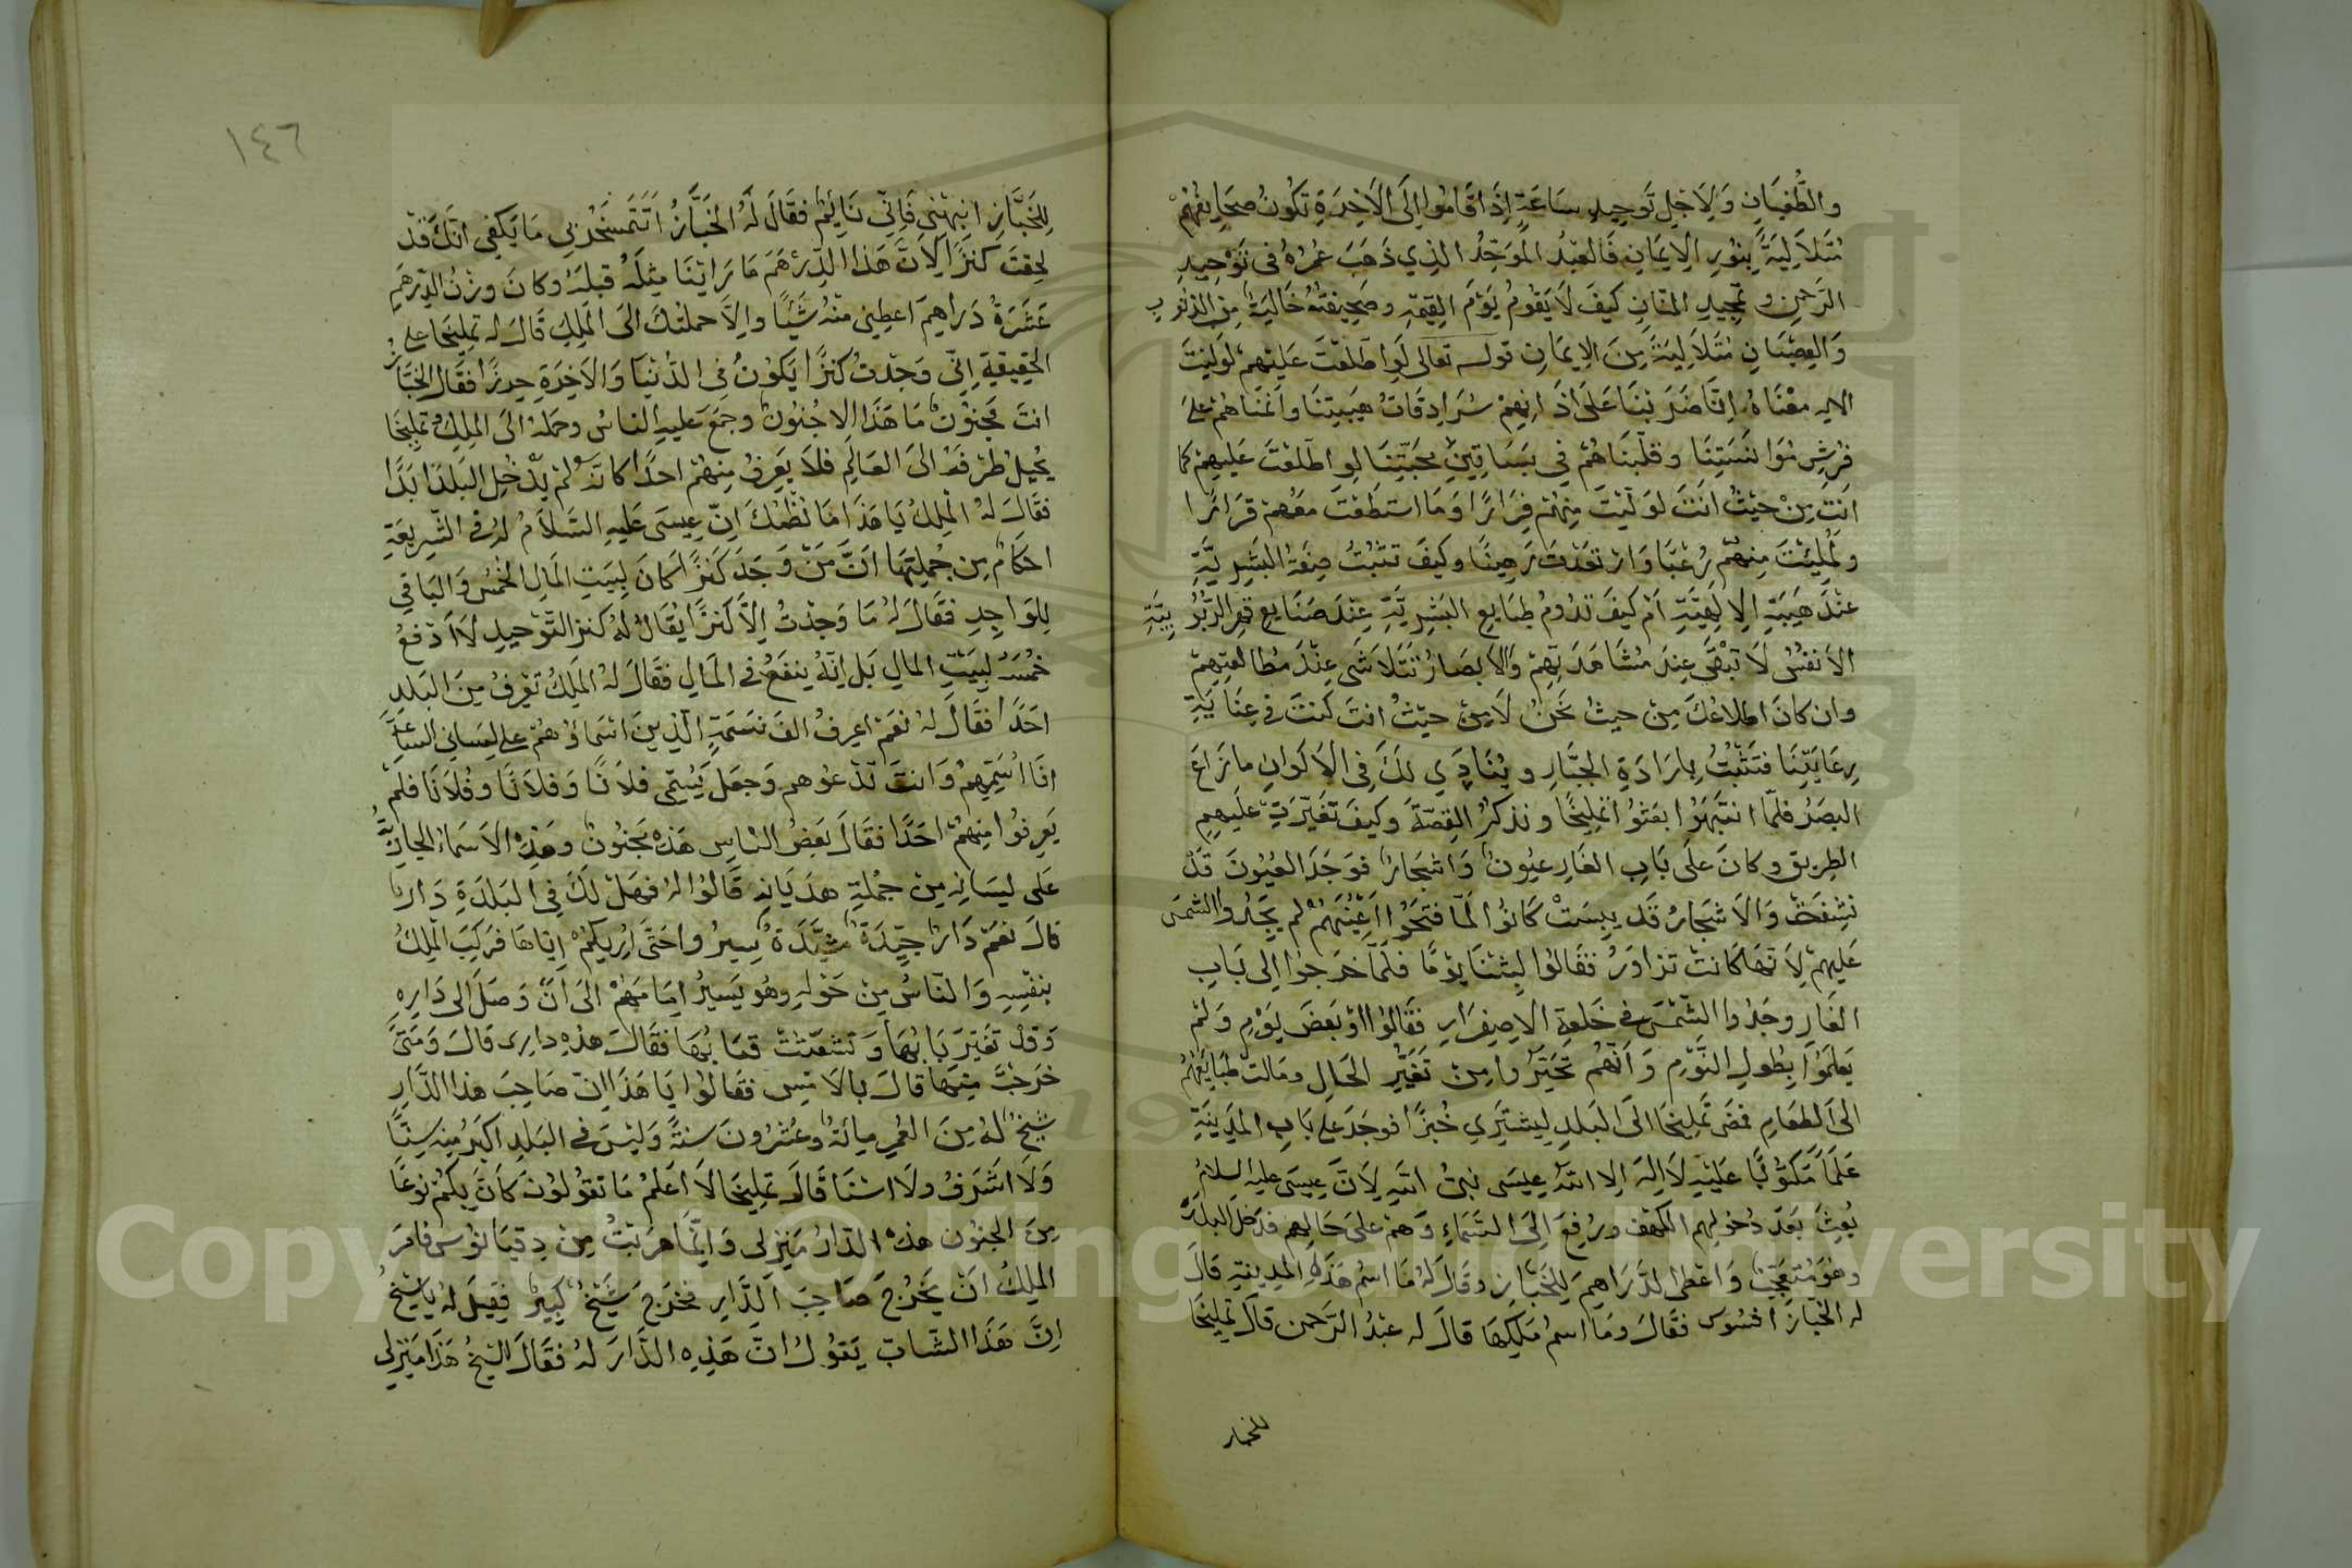 والطغيان ولاجل توحيد ساعة اذا قاموا الى الاخرة تكون صحايفهم
متلالية بنور الايمان فالعبد الموحد الذي ذهب عمره فى توحيد
الرحمن وتمجيد المنان كيف لا يقوم يوم القيمة وصحيفته خالية من الذنوب
والعصيان متلالية من الايمان قوله تعالى لو اطلعت عليهم لوليت
الايه معناه انا ضربنا على اذانهم سرادقات هيبتنا وانمناهم على
فرش موانستنا وقلبناهم في بساتين محبتنا لو اطلعت عليهم كما
انت من حيث انت لوليت منهم فرارا وما استطعت معهم قرارا
ولملئت منهم رعبا وارتعدت رهبنا وكيف تثبت صفة البشرية
عند هيبة الالهية ام كيف تدوم طبايع البشرية عند صنايع قهر الربوبية
الانفس لا تبقى عند مشاهدتهم والابصار تتلاشى عند مطالعتهم
وان كان اطلاعك من حيث نحن لا من حيث انت كنت في عناية
رعايتنا فتثبت بارادة الجبار وينادي لك فى الاكوان ما زاغ
البصر فلما انتبهوا بعثوا تمليخا ونذكر القصة وكيف تغيرت عليهم
الطريق وكان على باب الغار عيون واشجار فوجد العيون قد
نشفت والاشجار قد يبست كانوا لما فتحوا اعينهم لم يجدوا الشمس
عليهم لانها كانت تزاور فقالوا لبثنا يوما فلما خرجوا الى باب
الغار وجدوا الشمس في خلعة الاصفرار فقالوا او بعض يوم ولم
يعلموا بطول النوم وانهم تحيروا من تغير الحال ومالت طبايعهم
الى الطعام فمضى تمليخا الى البلد ليشتري خبزا فوجد على باب المدينة
علما مكتوبا عليه لا اله الا الله عيسى نبي الله لان عيسى عليه السلام
بعث بعد دخولهم الكهف ورفع الى السماء وهم على حالهم فدخل البلد
وهو متعجب واعطى الدراهم للخباز وقال له ما اسم هذه المدينة قال
له الخباز افسوس فقال وما اسم ملكها قال له عبد الرحمن قال تمليخا
١٤٦
للخباز انبهني فاني نائم فقال له الخباز اتتمسخر بي ما يكفي انك قد
لحقت كنزا الان هذا الدرهم ما راينا مثله قبله وكان وزن الدرهم
عشرة دراهم اعطيني منه شيئا والا حملتك الى الملك قال له تمليخا على
الحقيقة اني وجدت كنزا يكون في الدنيا والاخرة حرزا فقال الخباز
انت مجنون ما هذا الا جنون وجمع عليه الناس وحمله الى الملك وتمليخا
يحيل طرفه الى العالم فلا يعرف منهم احدا كانه لم يدخل البلد ابدا
فقال له الملك يا هذا ما نظلمك ان عيسى عليه السلام له في الشريعة
احكام من جملتها ان من وجد كنزا كان لبيت المال الخمس والباقي
للواجد فقال له ما وجدت الا كنزا يقال له كنز التوحيد لا ادفع
خمسه لبيت المال بل انه ينفع في المال فقال له الملك تعرف من البلد
احدا فقال له نعم اعرف الف نسمة الذين اسماؤهم على لساني الساعة
انا اسميهم وانت تدعوهم وجعل يسمى فلانا وفلانا وفلانا فلم
يعرفوا منهم احدا فقال بعض الناس هذا مجنون وهذه الاسماء الجارية
على لسانه من جملة هذيانه قالوا له فهل لك في البلدة دار
قال نعم دار جيدة مشيدة سيروا حتى اريكم اياها فركب الملك
بنفسه والناس من حوله وهو يسير امامهم الى ان وصل الى داره
وقد تغير بابها وتشعثت قبابها فقال هذه داري قال ومتى
خرجت منها قال بالامس فقالوا يا هذا ان صاحب هذا الدار
شيخ له من العمر مائة وعشرون سنة وليس في البلد اكبر منه سنا
ولا اشرف ولا اسنا قال تمليخا لا اعلم ما تقولون كان بكم نوعا
من الجنون هذه الدار منزلى وانما هربت من دقيانوس فامر
الملك ان يخرج صاحب الدار فخرج شيخ كبير فقيل له يا شيخ
ان هذا الشاب يقول ان هذه الدار له فقال الشيخ هذا منزلى
Copyright © King Saud University